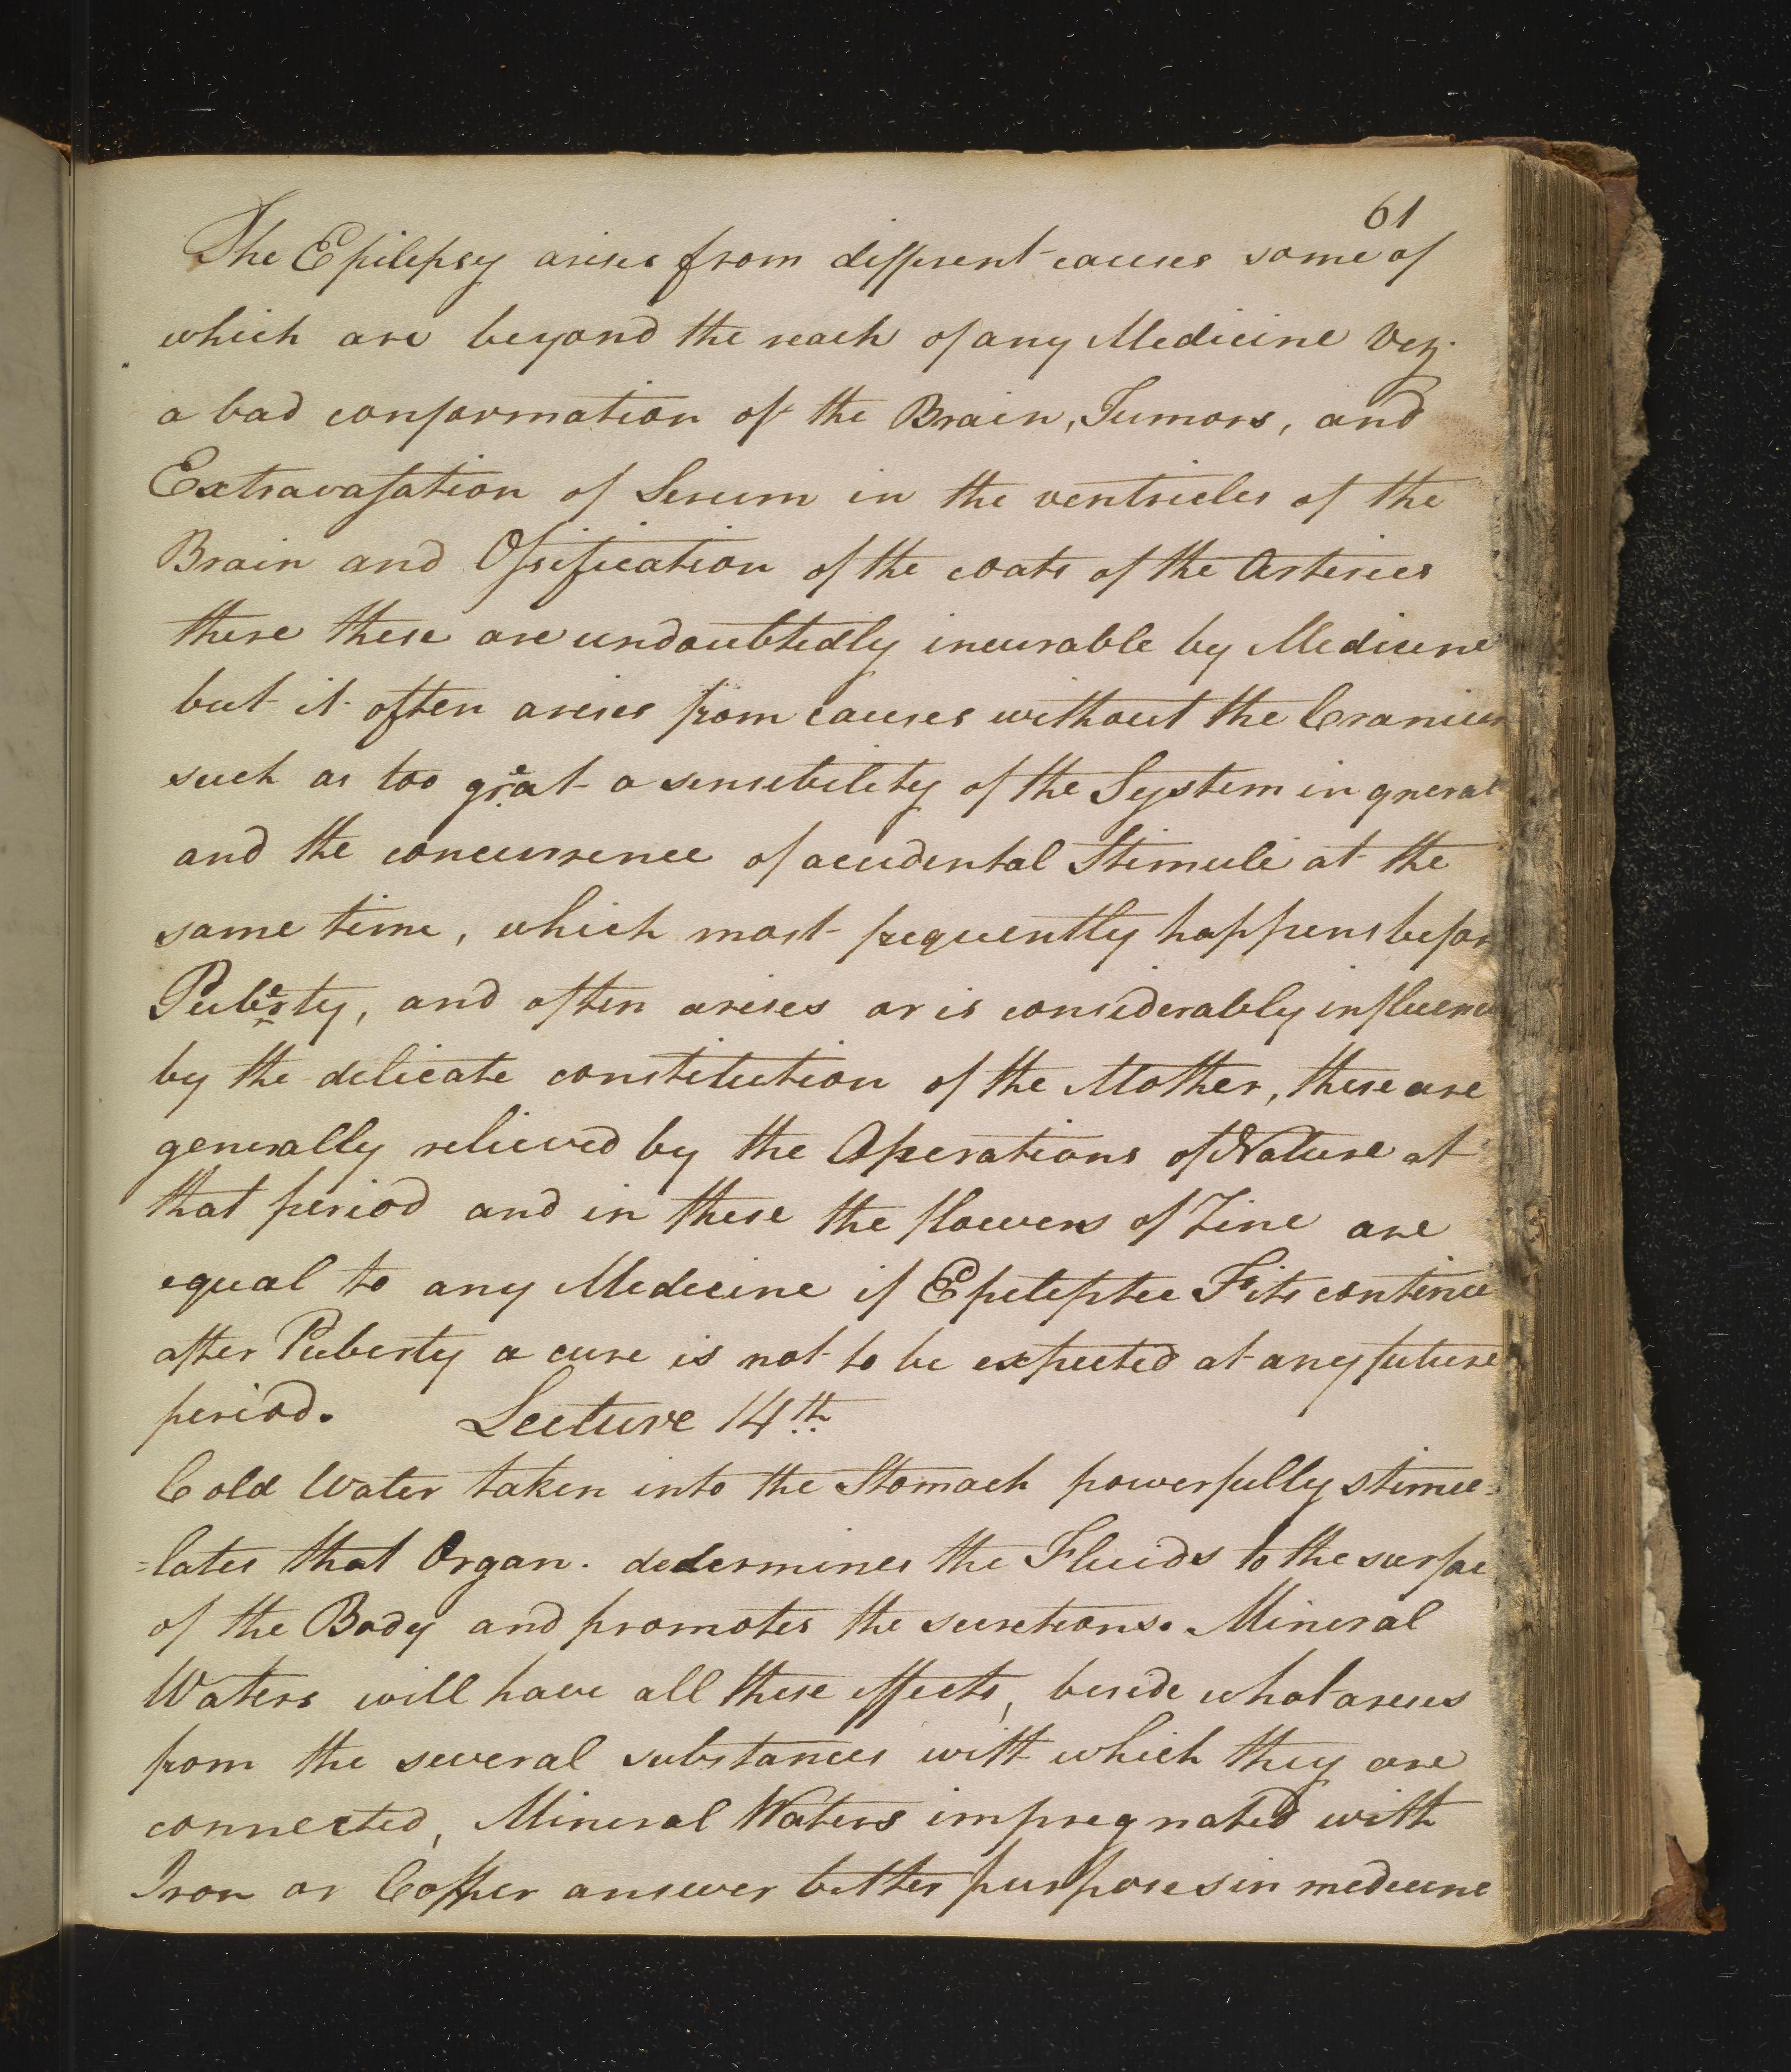 61
The Epilepsy arises from different causes some of
which are beyond the reach of any Medicine Vez.
a bad conformation of the Brain, Tumors, and
Extravasation of Serum in the ventricles of the
Brain and Ossification of the coats of the Arteries
these these are undoubtedly incurable by Medicine
but it often arises from causes without the Cranium
such as too great a sensibility of the System in gneral
and the concurrence of accidental Stimuli at the
same time, which most frequently happens before
Puberty, and often arises or is considerably influenc
by the delicate constitution of the Mother, these are
generally relieved by the Operations of Nature at
that period and in these the flowers of Zinc are
equal to any Medicine if Epileptic Fits continue
after Puberty a cure is not to be expected at any future
period. Lecture 14th
Cold Water taken into the Stomach powerfully stimu=
=lates that Organ. determines the Fluids to the surface
of the Body and promotes the secretions. Mineral
Waters will have all these effects, beside what arises
from the several substances with which they are
connected, Mineral Waters impregnated with
Iron or Copper answer better purposes in medicine